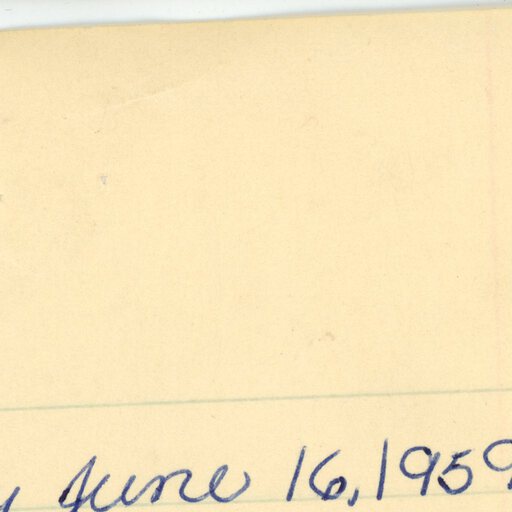 June 16, 1959